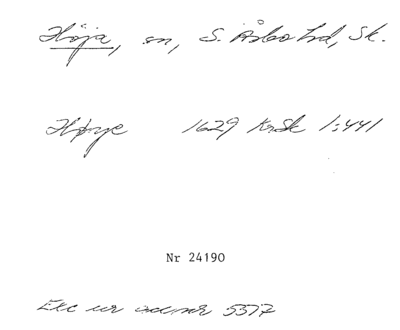 Höja, sn, S. Åsbo hd, Sk.
Høye 1629 KrSk 1:441
Nr 24190
Exc ur acc nr 5517